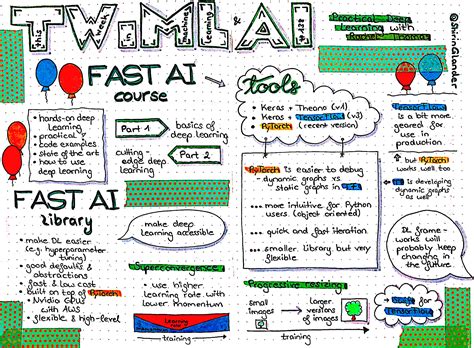 TWiMLAI
this week in machine learning & AI
#138
Practical Deep
Learning with
Rachel Thomas
@ShirinGlander
FAST AI
course
• hands-on deep
learning
• practical
• code examples
• state of the art
• how to use
deep learning
Part 1
basics of
deep learning
cutting-
edge deep
learning
Part 2
tools
• Keras + Theano (v1)
• Keras + TensorFlow (v2)
• PyTorch (recent version)
PyTorch is easier to debug
- dynamic graphs vs
static graphs in TF
... more intuitive for Python
users (object oriented)
... quick and fast iteration
... smaller library but very
flexible
TensorFlow
is a bit
more
geared for
use in
production
but PyTorch
works well too
TF is developing
dynamic graphs
as well
DL frame-
works will
probably keep
changing in
the future
Swift for
TensorFlow
FAST AI
library
• make DL easier
(e.g. hyperparameter
tuning)
• good defaults &
abstractions
• fast & low cost
• built on top of PyTorch
• Nvidia GPUs
with AWS
• flexible & high-level
make deep
learning accessible
Superconvergence
• use higher
learning rate with
lower momentum
learning
rate
momentum
training
Progressive resizing
small
images
larger
versions
of images
training